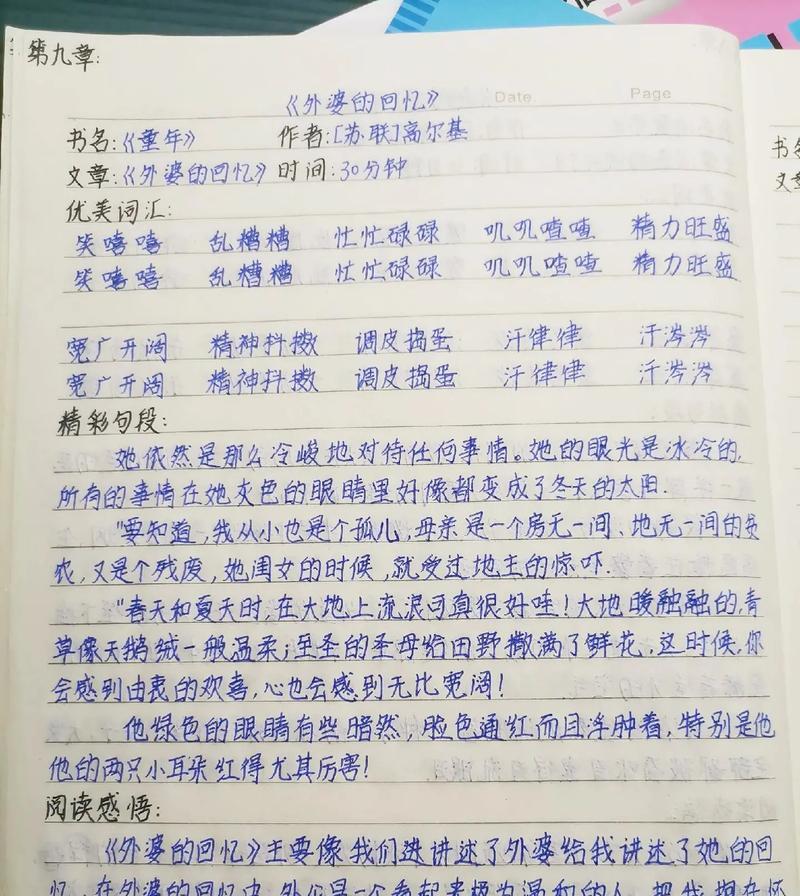 第九章:
《外婆的回忆》 Date. Page
书名:《童年》 作者:[苏·联]高尔基
文章:《外婆的回忆》 时间:30分钟
优美词汇:
笑嘻嘻 乱糟糟 忙忙碌碌 叽叽喳喳 精力旺盛
笑嘻嘻 乱糟糟 忙忙碌碌 叽叽喳喳 精力旺盛
宽广开阔 精神抖擞 调皮捣蛋 汗律律 汗涔涔
宽广开阔 精神抖擞 调皮捣蛋 汗律律 汗涔涔
精彩句段:
她依然是那么冷峻地对待任何事情。她的眼光是冰冷的,
所有的事情在她灰色的眼睛里好像都变成了冬天的太阳.
"要知道,我从小也是个孤儿,母亲是一个房无一间、地无一间的贫
农,又是个残废,她闺女的时候,就受过地主的惊吓.
"春天和夏天时,在大地上流浪可真很好哇!大地暖融融的,青
草像天鹅绒一般温柔;至圣的圣母给田野撒满了鲜花,这时候,你
会感到由衷的欢喜,心也会感到无比宽阔!
他绿色的眼睛有些暗然,脸色通红而且浮肿着,特别是他
他的两只小耳朵红得尤其厉害!
阅读感悟:
《外婆的回忆》主要像我们进讲述了外婆给我讲述了她的回
忆,在外婆的回忆中,外公是一个看起来极为温和的人,把我抱在怀
书名
文章